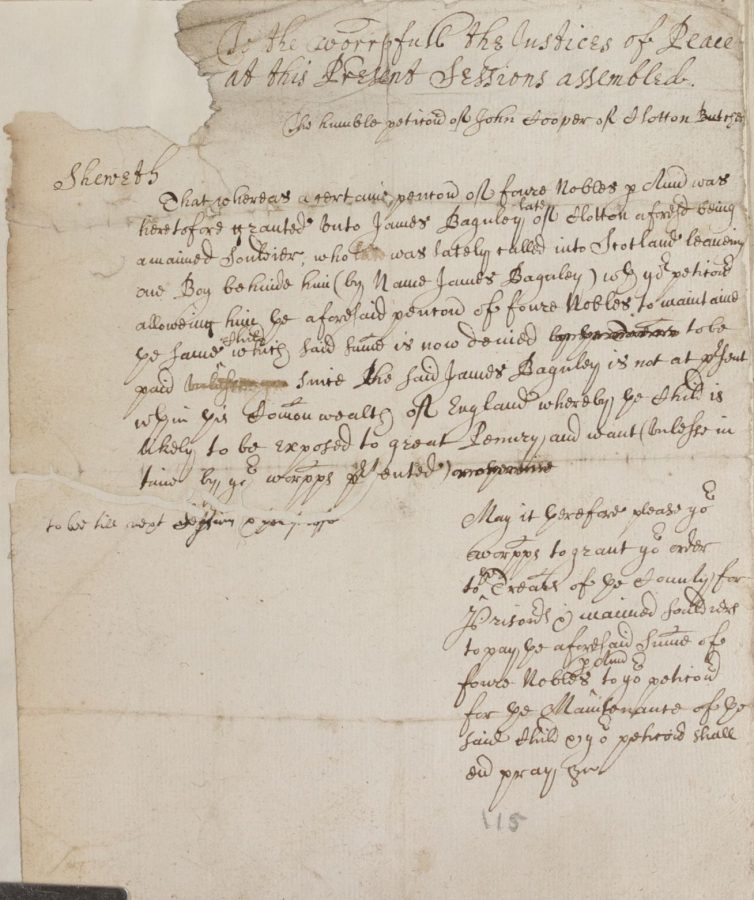 To the worshipfull the Justices of Peace
at this Present Sessions assembled.
The humble peticon of John Cooper of Clotton Butcher
Sheweth
That whereas a certaine pencon of foure Nobles p Annum was
heretofore graunted unto James Bagnley late of Clotton aforesd being
a maimed Souldier, who was lately called into Scotland leaveing
one Boy behinde him (by Name James Bagnley) wth yor peticonr
alloweing him the aforesaid pencon of foure Nobles to maintaine
the same Child which said sume is now denied to be
paid since the said James Bagnley is not at prsent
wthin this Comonwealth of England whereby the Child is
likely to be exposed to great Penury and want (unlesse in
time by yor worpps prvented)
to be till next Session
May it therefore please yor
worpps to grant yor order
to the Treasr of the County for
Prisonrs & maimed Souldiers
to pay the aforesaid Sume of
foure Nobles p Annum to yor peticonr
for the Maintenance of the
said Child & yor peticonr shall
ever pray &c
115